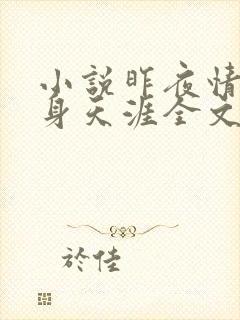 小說昨夜情
身天涯全文
於佳